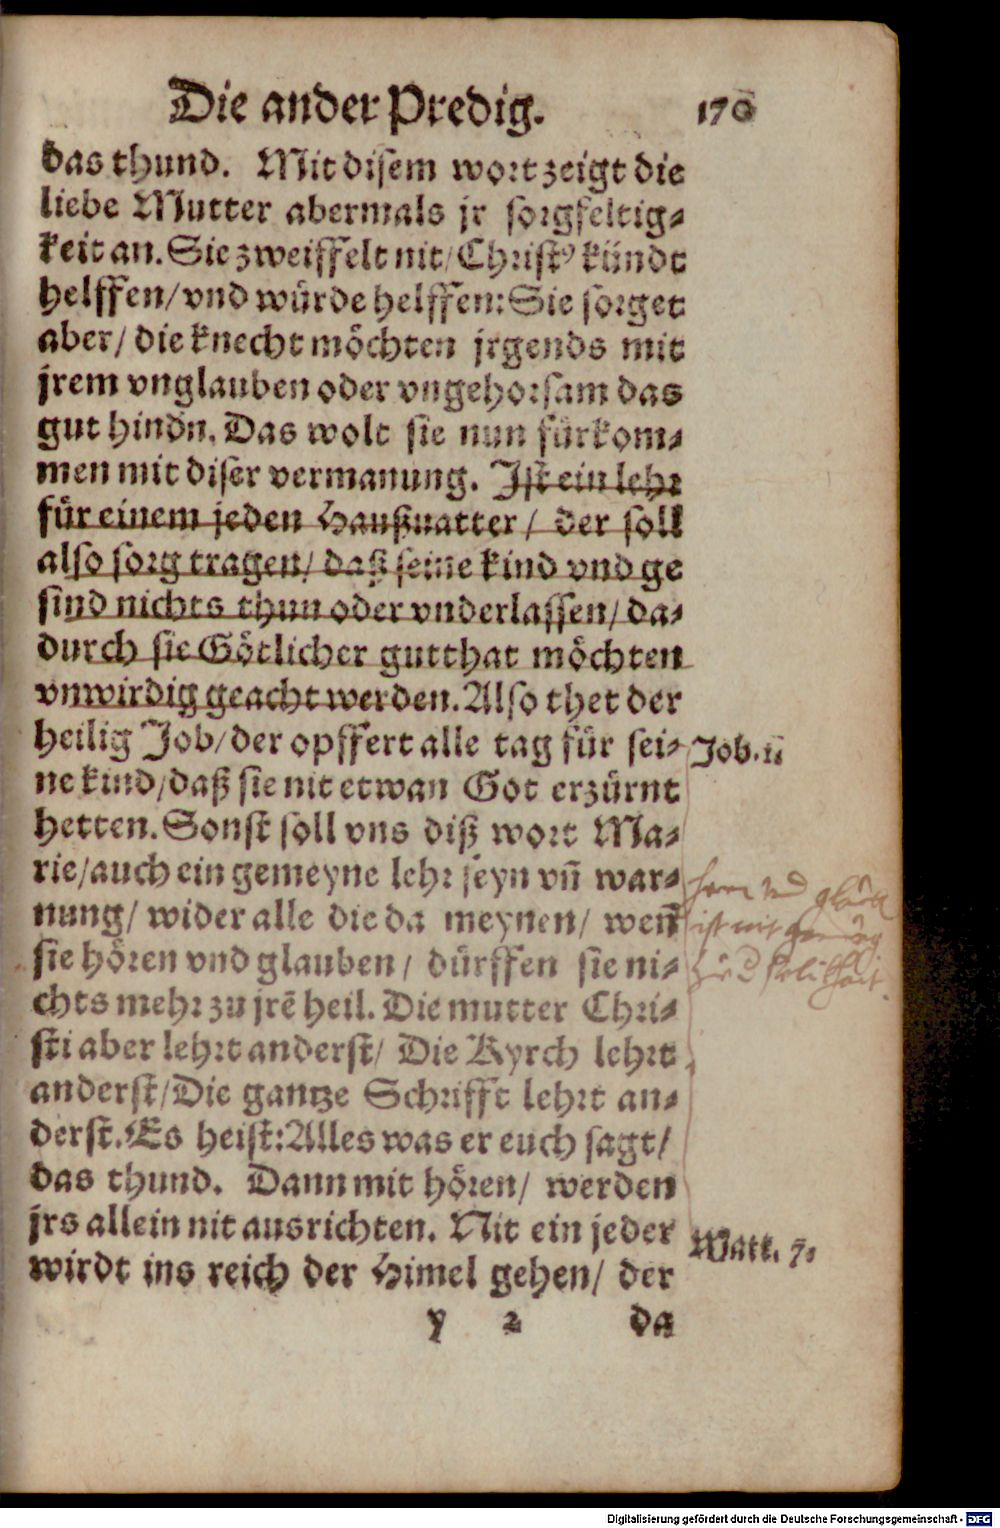 Die ander Predig. 170
das thund. Mit disem wort zeigt die
liebe Mutter abermals jr sorgfeltig-
keit an. Sie zweiffelt nit/ Christꝰ kündt
helffen/ vnd würde helffen: Sie sorget
aber/ die knecht möchten jrgends mit
jrem vnglauben oder vngehorsam das
gut hindn. Das wolt sie nun fürkom-
men mit diser vermanung. Ist ein lehr
für einem jeden Haußuatter/ der soll
also sorg tragen/ daß seine kind vnd ge
sind nichts thun oder vnderlassen/ da-
durch sie Götlicher gutthat möchten
vnwirdig geacht werden. Also thet der
heilig Job/ der opffert alle tag für sei-
Job. 1.
ne kind/ daß sie nit etwan Got erzürnt
hetten. Sonst soll vns diß wort Ma-
rie/ auch ein gemeyne lehr seyn vñ war-
nung/ wider alle die da meynen/ weñ
sie hören vnd glauben/ dürffen sie ni-
chts mehr zu jrē heil. Die mutter Chri-
sti aber lehrt anderst/ Die Kyrch lehrt
anderst/ Die gantze Schrifft lehrt an-
derst. Es heist: Alles was er euch sagt/
das thund. Dann mit hören/ werden
jrs allein nit ausrichten. Nit ein jeder
wirdt ins reich der Himel gehen/ der
Matt. 7.
y 2 da
ist nit
Digitalisierung gefördert durch die Deutsche Forschungsgemeinschaft - DFG